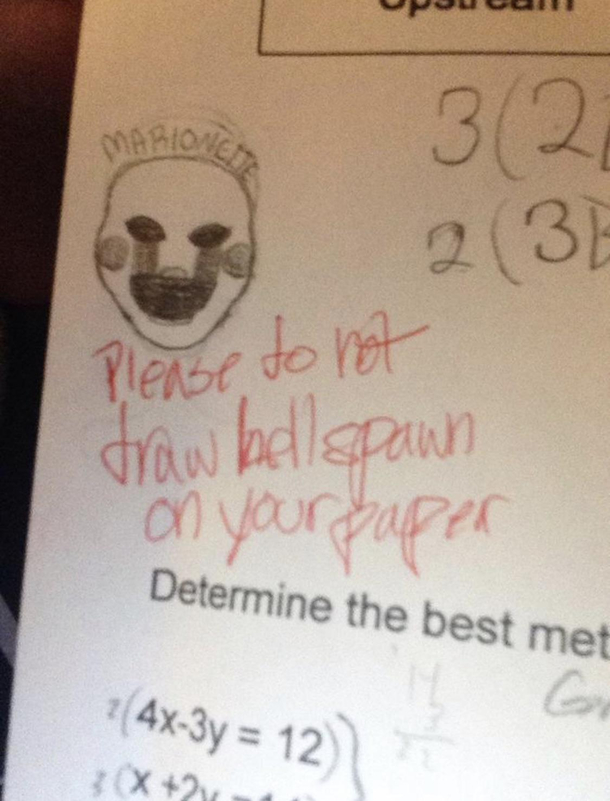 Upstream
MARIONETTE
3(2
2(3
Please do not
draw hellspawn
on your paper
Determine the best met
2(4x-3y = 12)
(x +2y